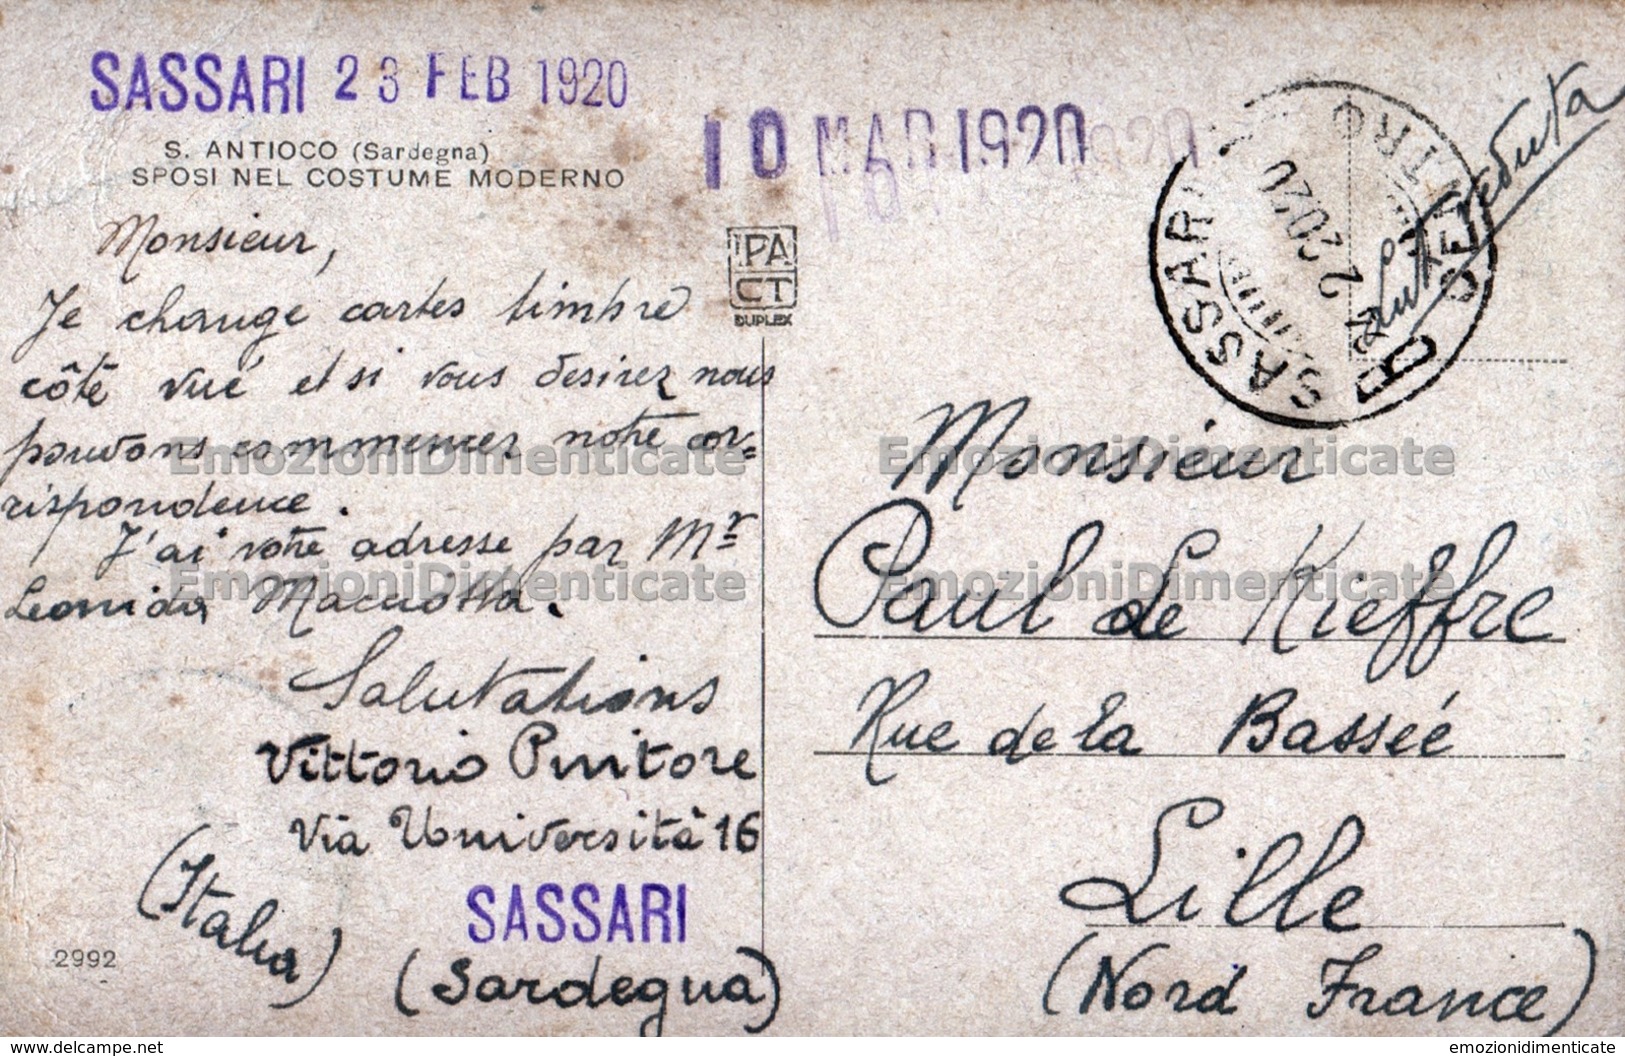 SASSARI 23 FEB 1920
S. ANTIOCO (Sardegna)
SPOSI NEL COSTUME MODERNO
Monsieur,
Je change cartes timbre
côté vué et si vous desirez nous
pouvons commencer notre cor=
rispondence.
J'ai votre adresse par Mr
Leonida Macciotta.
Salutations
Vittorio Pintore
Via Università 16
SASSARI
(Sardegna)
(Italia)
2992
10 MAR 1920
IPA
CT
DUPLEX
SASSARI CENTRO
2 20 20
veduta
Monsieur
Paul de Kieffre
Rue de la Basseé
Lille
(Nord France)
EmozioniDimenticate EmozioniDimenticate
EmozioniDimenticate EmozioniDimenticate
www.delcampe.net
emozionidimenticate